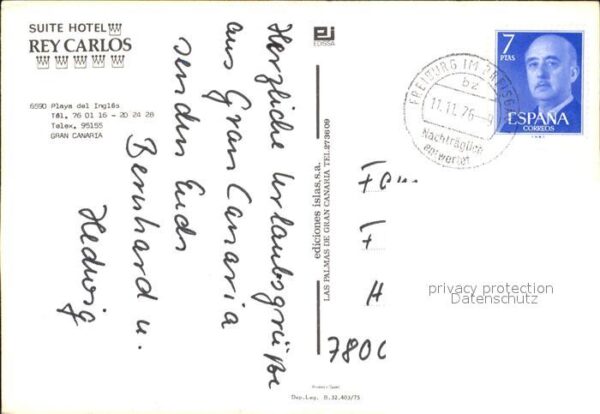 SUITE HOTEL
REY CARLOS
6590 Playa del Inglés
Tél. 76 01 16 - 20 24 28
Telex. 95155
GRAN CANARIA
Herzliche Urlaubsgrüße
aus Gran Canaria
senden Euch
Bernhard u.
Hedwig
EDISSA
ediciones islas, s.a.
LAS PALMAS DE GRAN CANARIA TEL. 273609
Dep. Leg. B. 32.403/75
7 PTAS
ESPAÑA
CORREOS
FREIBURG IM BREISGAU
bz
11.11.76-9
Nachträglich
entwertet
Fam
F
H
780
privacy protection
Datenschutz